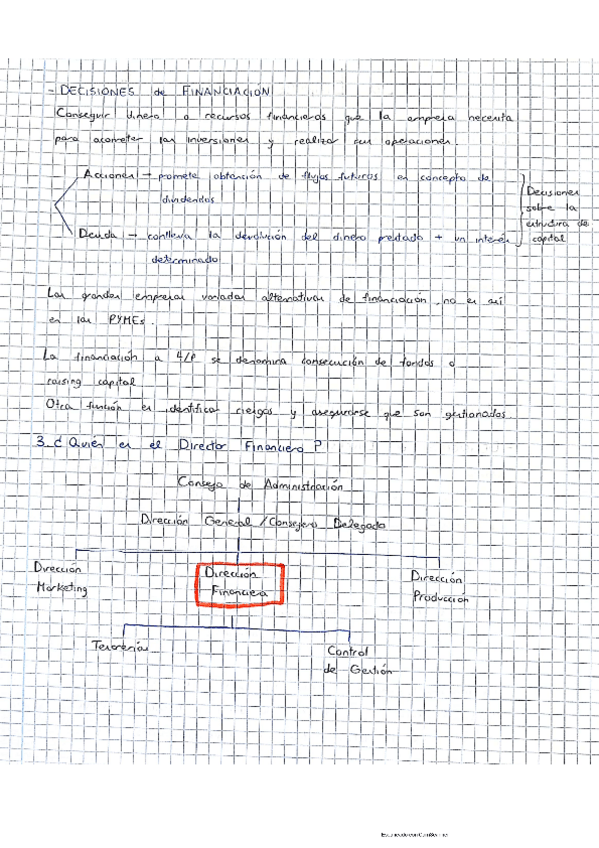 - DECISIONES de FINANCIACIÓN
Conseguir dinero o recursos financieros que la empresa necesita
para acometer las inversiones y realizar sus operaciones.
Acciones → promete obtención de flujos futuros en concepto de
dividendos
Deuda → conlleva la devolución del dinero prestado + un interés
determinado
Decisiones
sobre la
estructura de
capital
Las grandes empresas variadas alternativas de financiación, no es así
en las PYMEs.
La financiación a L/P se denomina consecución de fondos o
raising capital
Otra función es identificar riesgos y asegurarse que son gestionados
3. ¿Quién es el Director Financiero?
Consejo de Administración
Dirección General / Consejero Delegado
Dirección
Marketing
Dirección
Financiera
Dirección
Producción
Tesorería
Control
de Gestión
Escaneado con CamScanner